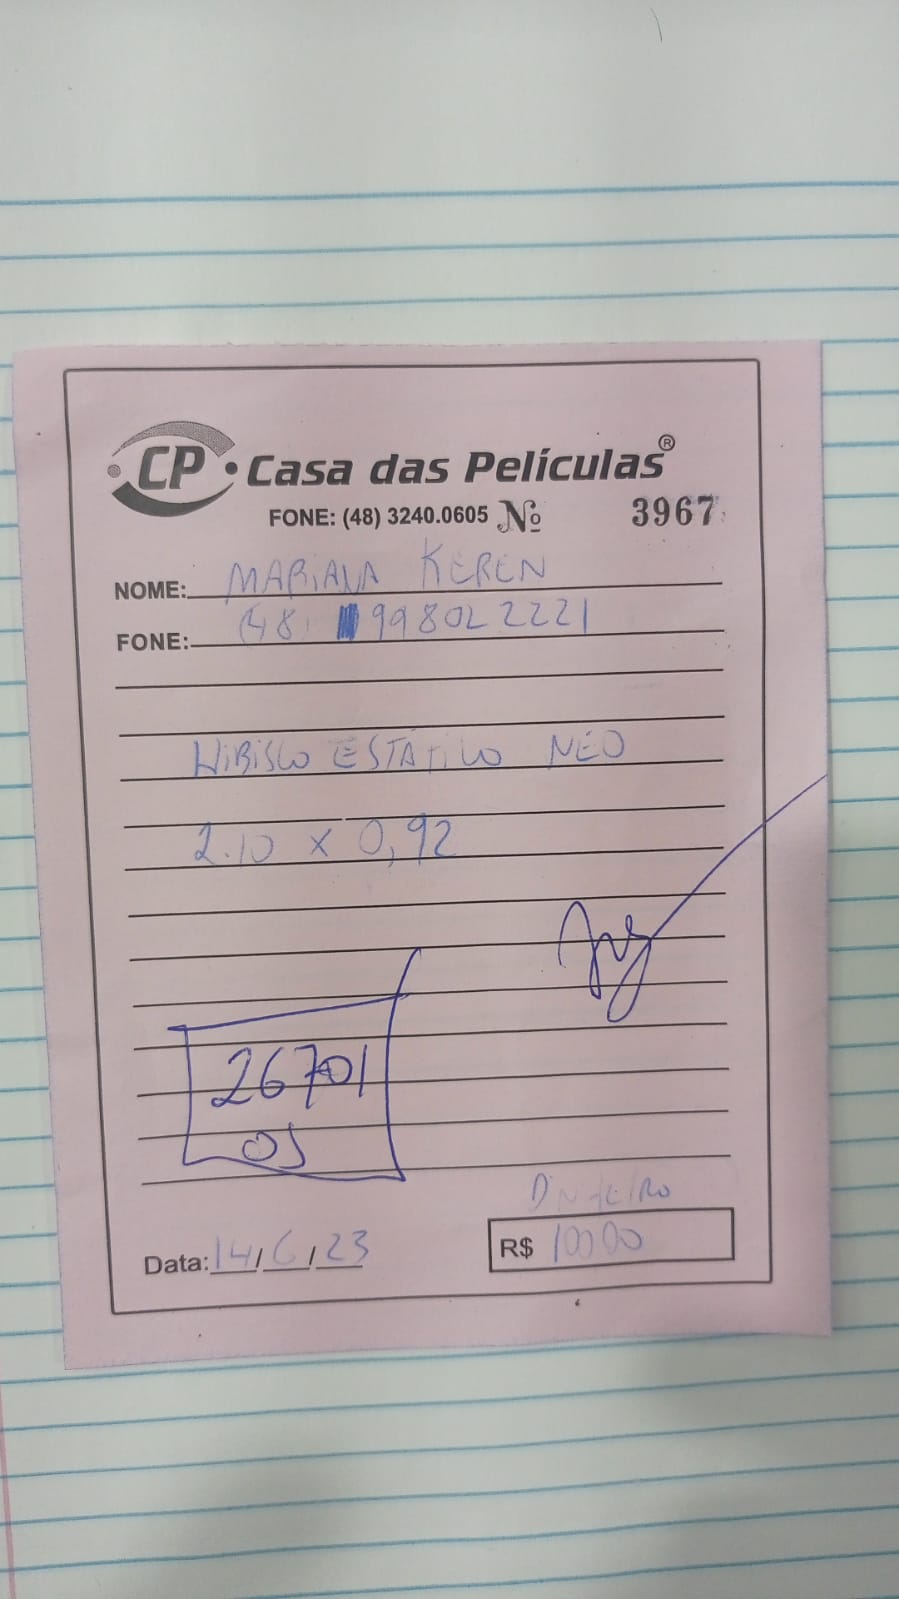 CP Casa das Películas®
FONE: (48) 3240.0605 Nº 3967
NOME: MARIANA KEREN
FONE: (48) 998022221
HIBISCO ESTÁTICO NEO
2.10 x 0,92
26701
OS
DINHEIRO
Data: 14/6/23 R$ 100 00